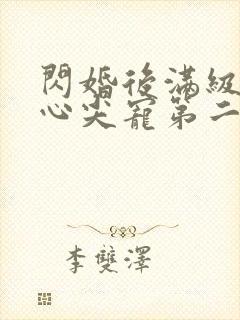 閃婚後滿級
心尖寵第二
李雙澤